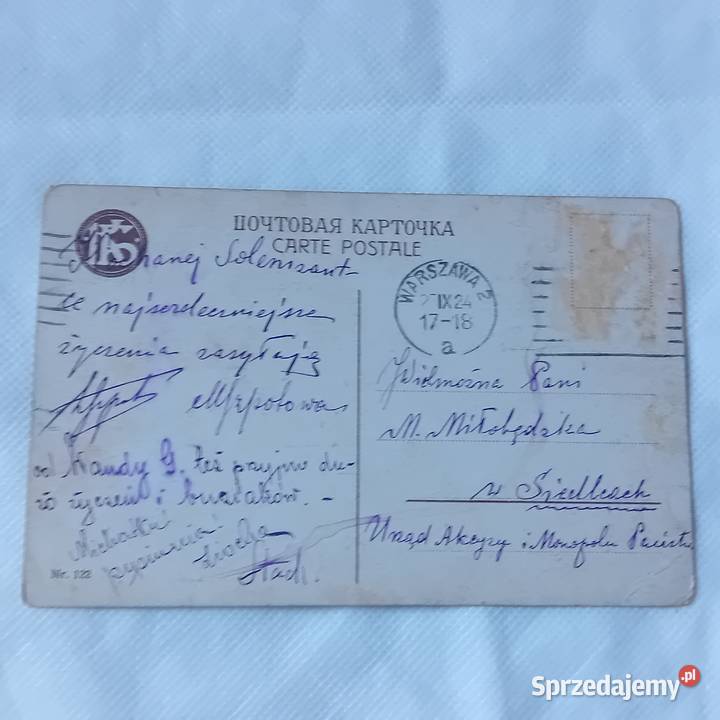 ПОЧТОВАЯ КАРТОЧКА
CARTE POSTALE
Kochanej Solenizant
ce najserdeczniejsze
życzenia zasyłają
od Wandy G. też przyjm du-
żo życzeń i buziaków. –
Nr. 122
WARSZAWA 2
IX 24
17-18
a
JWielmożna Pani
M. Miłobędzka
w Siedlcach
Urząd Akcyzy i Monopolu Państw
Sprzedajemy.pl